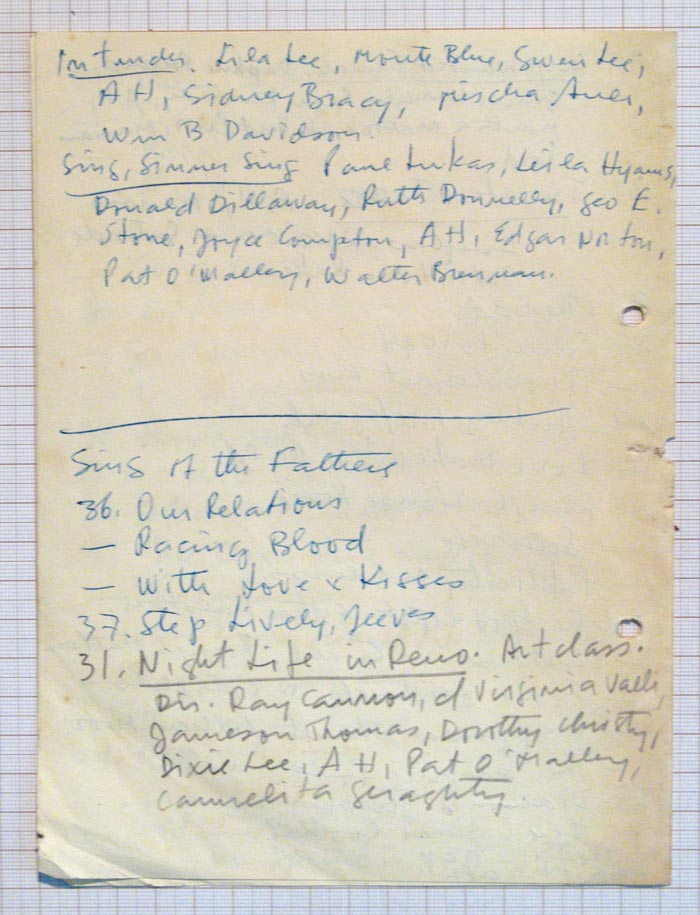 Intruder. Lila Lee, Monte Blue, Gwen Lee,
A H, Sidney Bracy, Mischa Auer,
Wm B Davidson.
Sing, Sinner Sing Paul Lukas, Leila Hyams,
Donald Dillaway, Ruth Donnelly, Geo E.
Stone, Joyce Compton, A H, Edgar Norton,
Pat O'Malley, Walter Brennan.
Sins of the Fathers
36. Our Relations
— Racing Blood
— With Love & Kisses
37. Step Lively, Jeeves
31. Night Life in Reno. Artclass.
Dir. Ray Cannon, Virginia Valli,
Jameson Thomas, Dorothy Christy,
Dixie Lee, A H, Pat O'Malley,
Carmelita Geraghty.